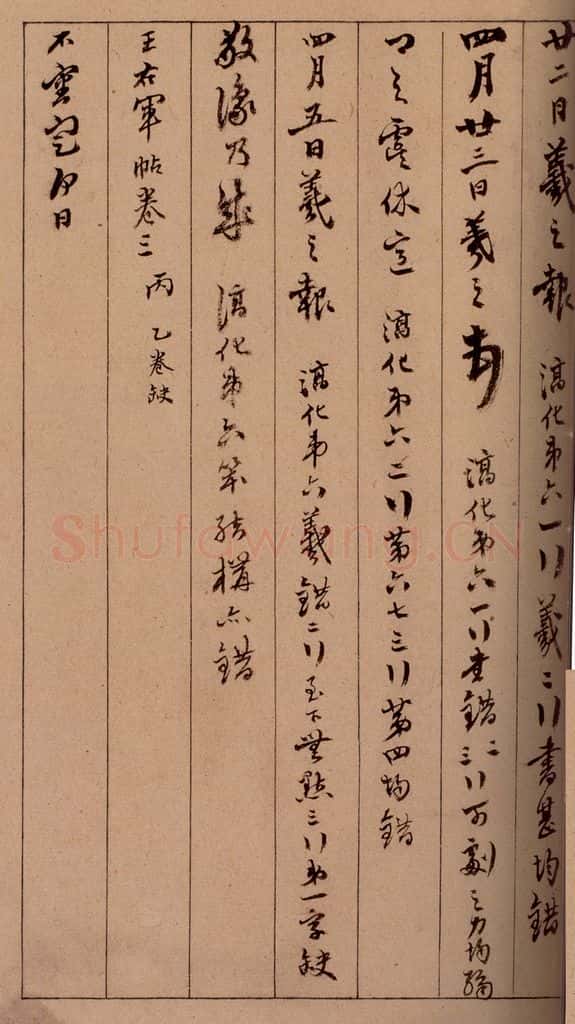 廿二日羲之報 淳化第六一行羲二行書甚均錯
四月廿三日羲之 淳化第六一行 錯二三行 劇之力均
之 休 淳化第六二行第六七三行第四均錯
四月五日羲之報 淳化第六羲錯二行至下無點三行第一字缺
敬豫乃 淳化第六 結構亦錯
王右軍帖卷三 丙 乙卷缺
不 日
Shufawang.CN